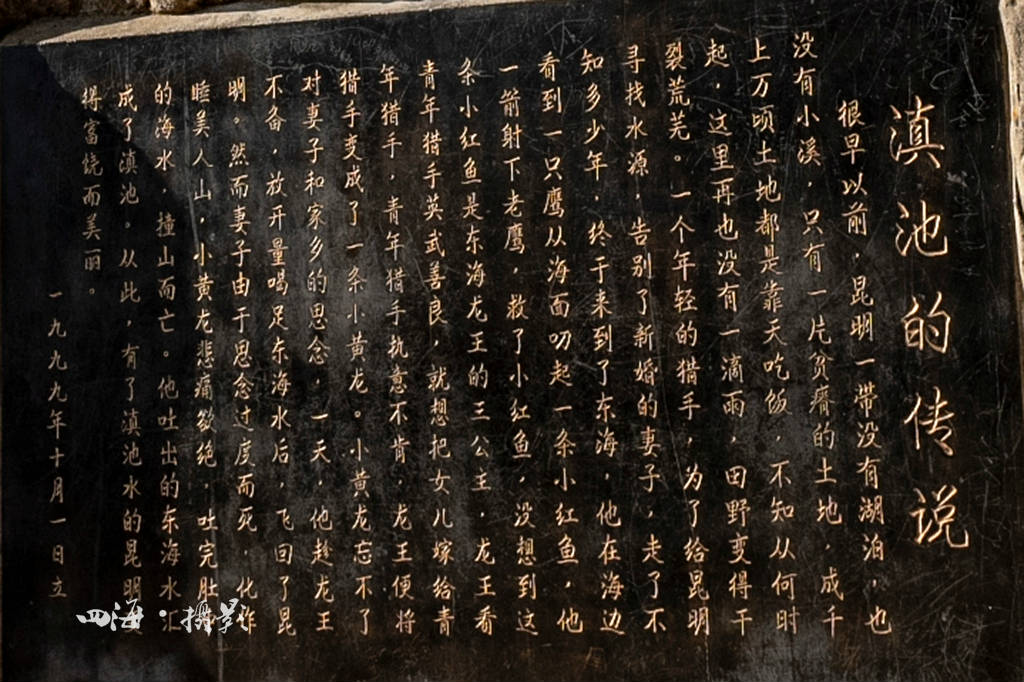 滇池的传说
很早以前，昆明一带没有湖泊，也
没有小溪，只有一片贫瘠的土地，成千
上万顷土地都是靠天吃饭，不知从何时
起，这里再也没有一滴雨，田野变得干
裂荒芜。一个年轻的猎手，为了给昆明
寻找水源，告别了新婚的妻子，走了不
知多少年，终于来到了东海，他在海边
看到一只鹰从海面叨起一条小红鱼，他
一箭射下老鹰，救了小红鱼，没想到这
条小红鱼是东海龙王的三公主，龙王看
青年猎手英武善良，就想把女儿嫁给青
年猎手，青年猎手执意不肯，龙王便将
猎手变成了一条小黄龙。小黄龙忘不了
对妻子和家乡的思念，一天，他趁龙王
不备，放开量喝足东海水后，飞回了昆
明。然而妻子由于思念过度而死，化作
睡美人山，小黄龙悲痛欲绝，吐完肚
的海水，撞山而亡。他吐出的东海水汇
成了滇池。从此，有了滇池水的昆明
得富饶而美丽。
一九九九年十月一日立
四海·摄影